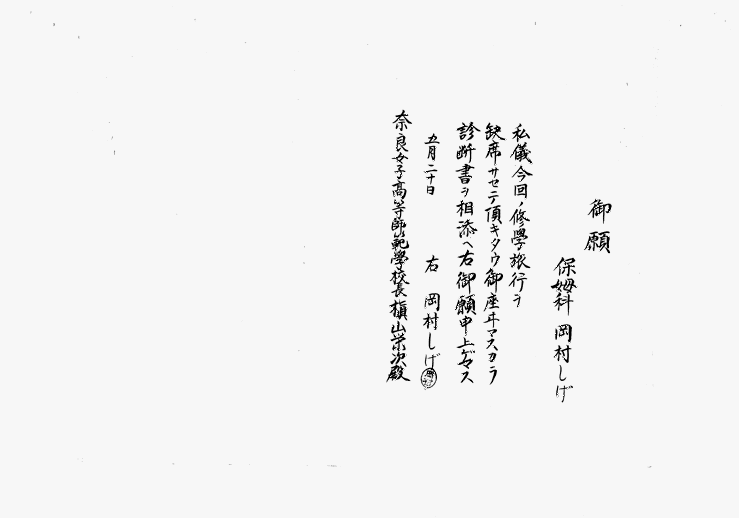 御願
保姆科 岡村しげ
私儀今回ノ修學旅行ヲ
缺席サセテ頂キタウ御座ヰマスカラ
診断書ヲ相添ヘ右御願申上ゲマス
五月二十日
右 岡村しげ
奈良女子高等師範學校長槇山栄次殿